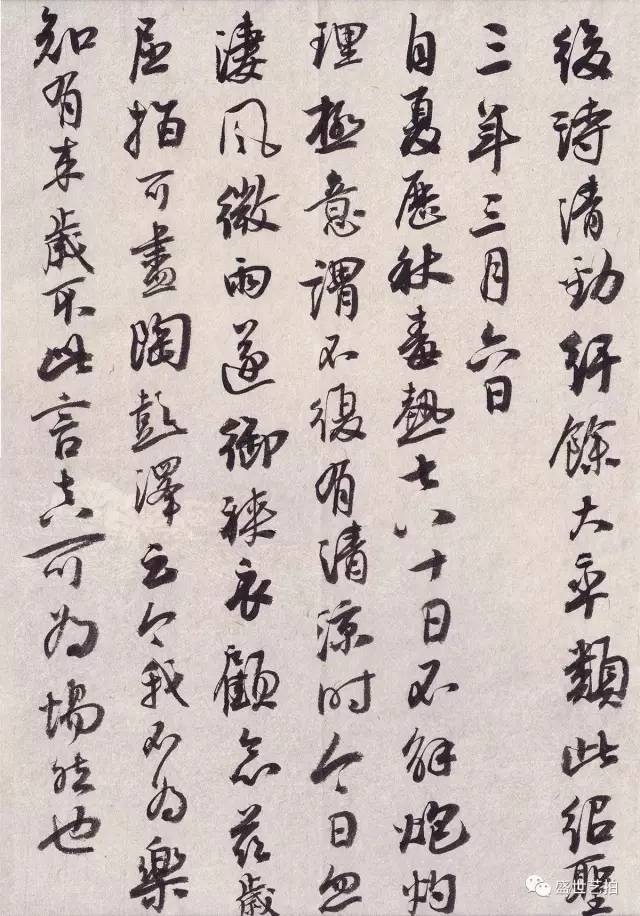 後詩清勁紆餘大率類此紹聖
三年三月六日
自夏歷秋毒熱七八十日不解炮灼
理極意謂不復有清涼時今日忽
淒風微雨遂御裌衣顧念茲歲
屈指可盡陶彭澤云今我不為樂
知有來歲不此言真可為惕然也
盛世艺拍